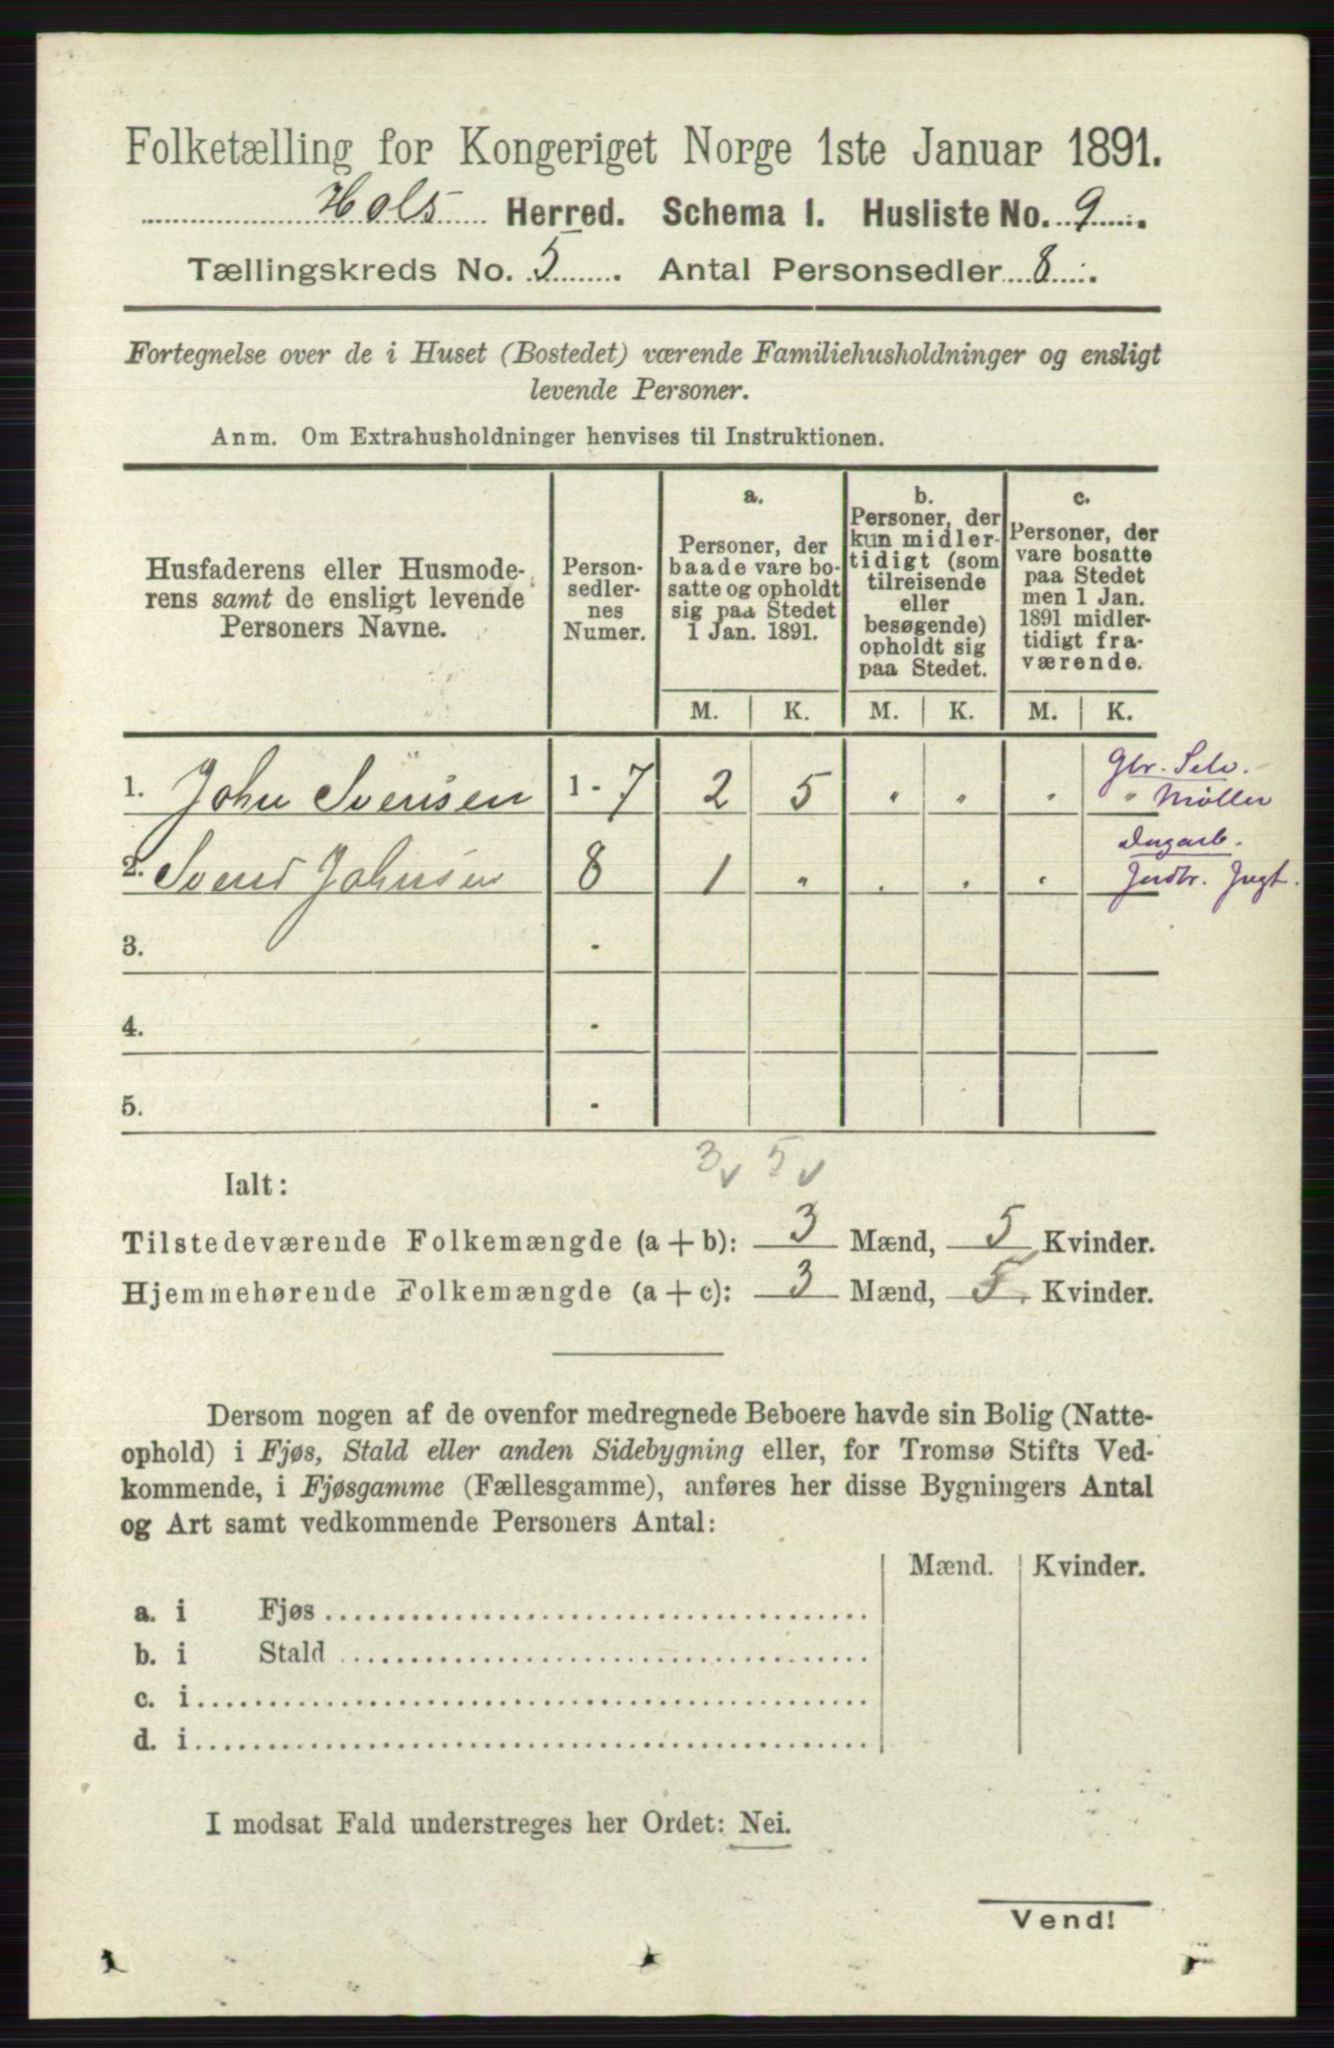 Folketælling for Kongeriget Norge 1ste Januar 1891.
Hols Herred. Schema 1. Husliste No. 9.
Tællingskreds No. 5. Antal Personsedler 8.
Fortegnelse over de i Huset (Bostedet) værende Familiehusholdninger og ensligt
levende Personer.
Anm. Om Extrahusholdninger henvises til Instruktionen.
Husfaderens eller Husmode-
rens samt de ensligt levende
Personers Navne.
Person-
sedler-
nes
Numer.
a.
Personer, der
baade vare bo-
satte og opholdt
sig paa Stedet
1 Jan. 1891.
b.
Personer, der
kun midler-
tidigt (som
tilreisende
eller
besøgende)
opholdt sig
paa Stedet.
c.
Personer, der
vare bosatte
paa Stedet
men 1 Jan.
1891 midler-
tidigt fra-
værende.
M. K. M. K. M. K.
Gbr. Selv.
1. John Svensen 1 - 7 2 5 " " " " Møller
Dagarb.
2. Svend Johnsen 8 1 " " " " Jordbr. Jagt.
3. -
4. -
5. -
3 v 5 v
Ialt:
Tilstedeværende Folkemængde (a + b): 3 Mænd, 5 Kvinder.
Hjemmehørende Folkemængde (a + c): 3 Mænd, 5. Kvinder.
Dersom nogen af de ovenfor medregnede Beboere havde sin Bolig (Natte-
ophold) i Fjøs, Stald eller anden Sidebygning eller, for Tromsø Stifts Ved-
kommende, i Fjøsgamme (Fællesgamme), anføres her disse Bygningers Antal
og Art samt vedkommende Personers Antal:
Mænd. Kvinder.
a. i Fjøs
b. i Stald
c. i
d. i
I modsat Fald understreges her Ordet: Nei.
Vend!